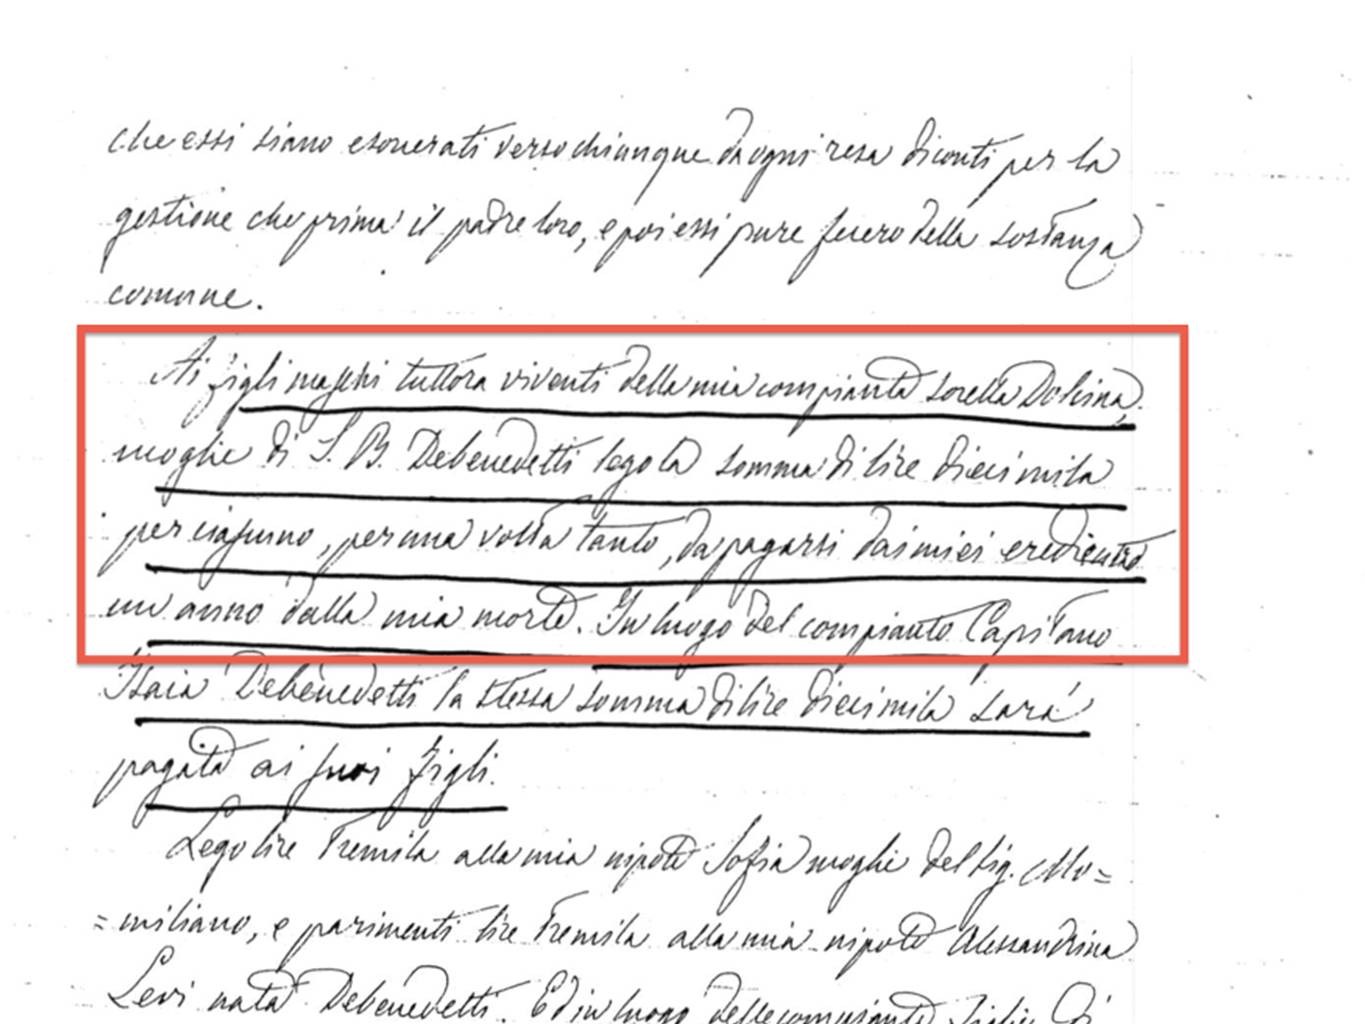 che essi siano esonerati verso chiunque da ogni resa di conti per la
gestione che prima il padre loro, e poi essi pure fecero della sostanza
comune.
Ai figli maschi tuttora viventi della mia compianta sorella Dolcina,
moglie di S. B. Debenedetti lego la somma di lire diecimila
per ciascuno, per una volta tanto, da pagarsi dai miei eredi entro
un anno dalla mia morte. In luogo del compianto Capitano
Isaia Debenedetti la stessa somma di lire diecimila sarà
pagata ai suoi figli.
Lego lire tremila alla mia nipote Sofia moglie del Sig. Mo=
=miliano, e parimenti lire tremila alla mia nipote Alessandrina
Levi nata Debenedetti. Ed in luogo della compianta figlia di